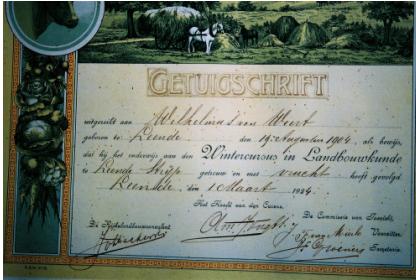 GETUIGSCHRIFT
uitgereikt aan Wilhelmus van Weert
geboren te Leende den 19 Augustus 1904, als bewijs,
dat hij het onderwijs aan den Wintercursus in Landbouwkunde
te Leende Strijp getrouw en met vrucht heeft gevolgd
Leende, den 1 Maart 1924.
Het Hoofd van den Cursus, De Commissie van Toezicht,
De Rijkslandbouwconsulent
Voorzitter.
Secretaris.